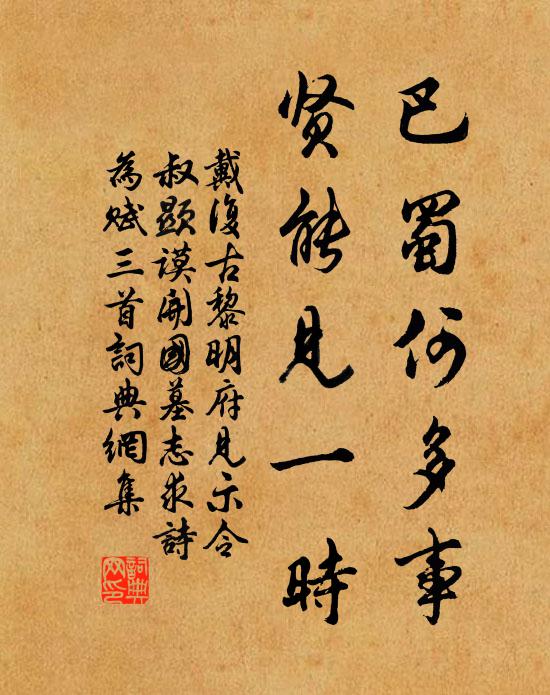 巴蜀何多事
贤能見一時
戴復古黎明府見示令
叔顕謨開國墓志求詩
為賦三首詞典網集
詞典网印